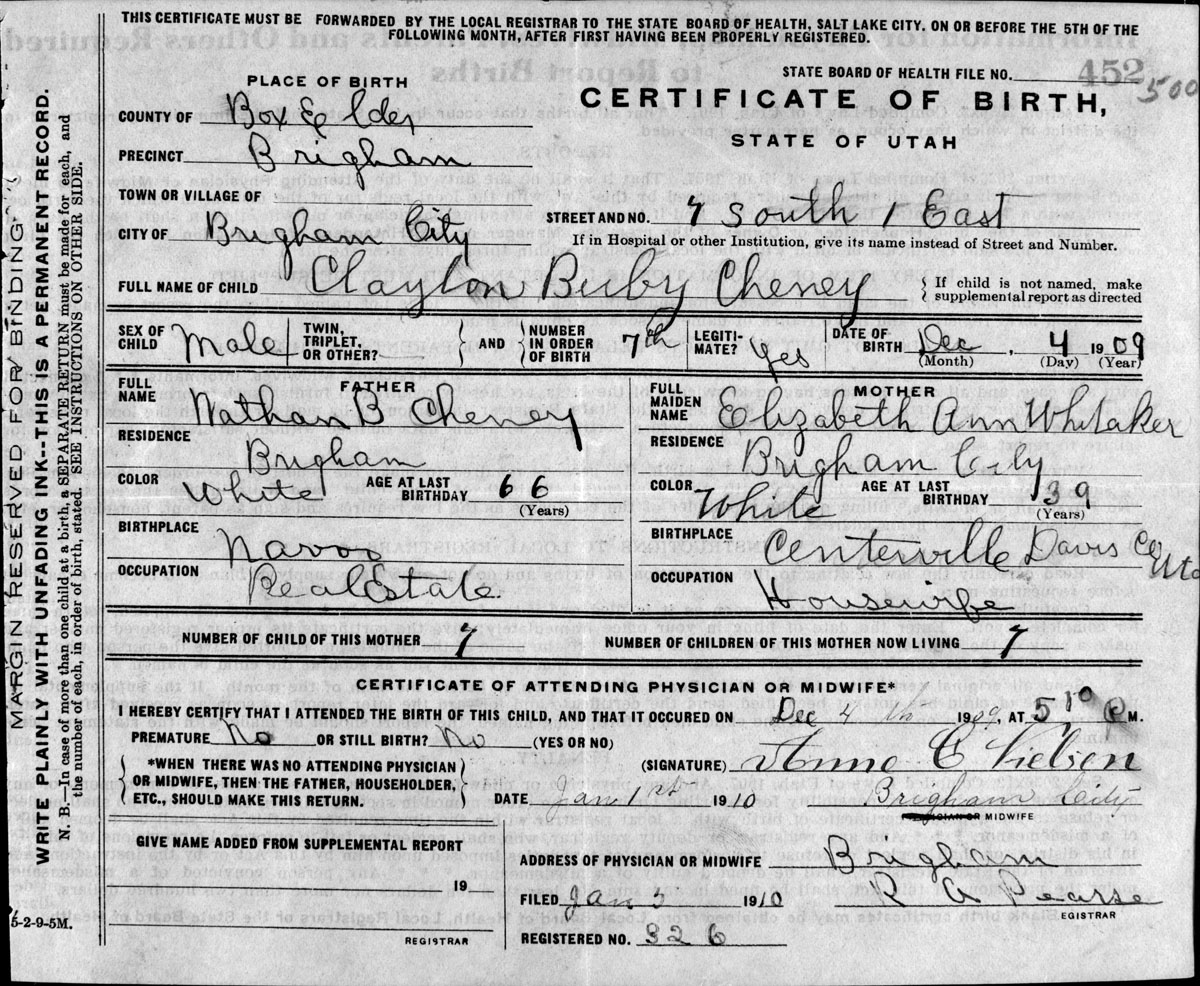 THIS CERTIFICATE MUST BE FORWARDED BY THE LOCAL REGISTRAR TO THE STATE BOARD OF HEALTH, SALT LAKE CITY, ON OR BEFORE THE 5TH OF THE
FOLLOWING MONTH, AFTER FIRST HAVING BEEN PROPERLY REGISTERED.
STATE BOARD OF HEALTH FILE NO. 452 500
PLACE OF BIRTH
CERTIFICATE OF BIRTH,
STATE OF UTAH
COUNTY OF Box Elder
PRECINCT Brigham
TOWN OR VILLAGE OF
CITY OF Brigham City
STREET AND NO. 7 South 1 East
If in Hospital or other Institution, give its name instead of Street and Number.
FULL NAME OF CHILD Clayton Cheney
If child is not named, make
supplemental report as directed
SEX OF CHILD Male
TWIN, TRIPLET, OR OTHER?
AND
NUMBER IN ORDER OF BIRTH 7th
LEGITI-MATE? Yes
DATE OF BIRTH Dec, 4 1909
(Month) (Day) (Year)
FATHER
FULL NAME Nathan B Cheney
RESIDENCE Brigham
COLOR White
AGE AT LAST BIRTHDAY 66
(Years)
BIRTHPLACE Navoo
OCCUPATION Real Estate
MOTHER
FULL MAIDEN NAME Elizabeth Ann Whitaker
RESIDENCE Brigham City
COLOR White
AGE AT LAST BIRTHDAY 39
(Years)
BIRTHPLACE Centerville Davis Co Uta
OCCUPATION Housewife
NUMBER OF CHILD OF THIS MOTHER 7
NUMBER OF CHILDREN OF THIS MOTHER NOW LIVING 7
CERTIFICATE OF ATTENDING PHYSICIAN OR MIDWIFE*
I HEREBY CERTIFY THAT I ATTENDED THE BIRTH OF THIS CHILD, AND THAT IT OCCURED ON Dec 4 th 1909, AT 5 10 P M.
PREMATURE No OR STILL BIRTH? No (YES OR NO)
*WHEN THERE WAS NO ATTENDING PHYSICIAN
OR MIDWIFE, THEN THE FATHER, HOUSEHOLDER,
ETC., SHOULD MAKE THIS RETURN.
(SIGNATURE) Anne C Nielsen
DATE Jan 1st 1910 Brigham City
OR MIDWIFE
GIVE NAME ADDED FROM SUPPLEMENTAL REPORT
19
REGISTRAR
ADDRESS OF PHYSICIAN OR MIDWIFE Brigham
FILED Jan 1910 R A Pearse
EGISTRAR
REGISTERED NO. 326
MARGIN RESERVED FOR BINDING
WRITE PLAINLY WITH UNFADING INK--THIS IS A PERMANENT RECORD.
N. B.—In case of more than one child at a birth, a SEPARATE RETURN must be made for each, and
the number of each, in order of birth, stated. SEE INSTRUCTIONS ON OTHER SIDE.
5-2-9-5M.